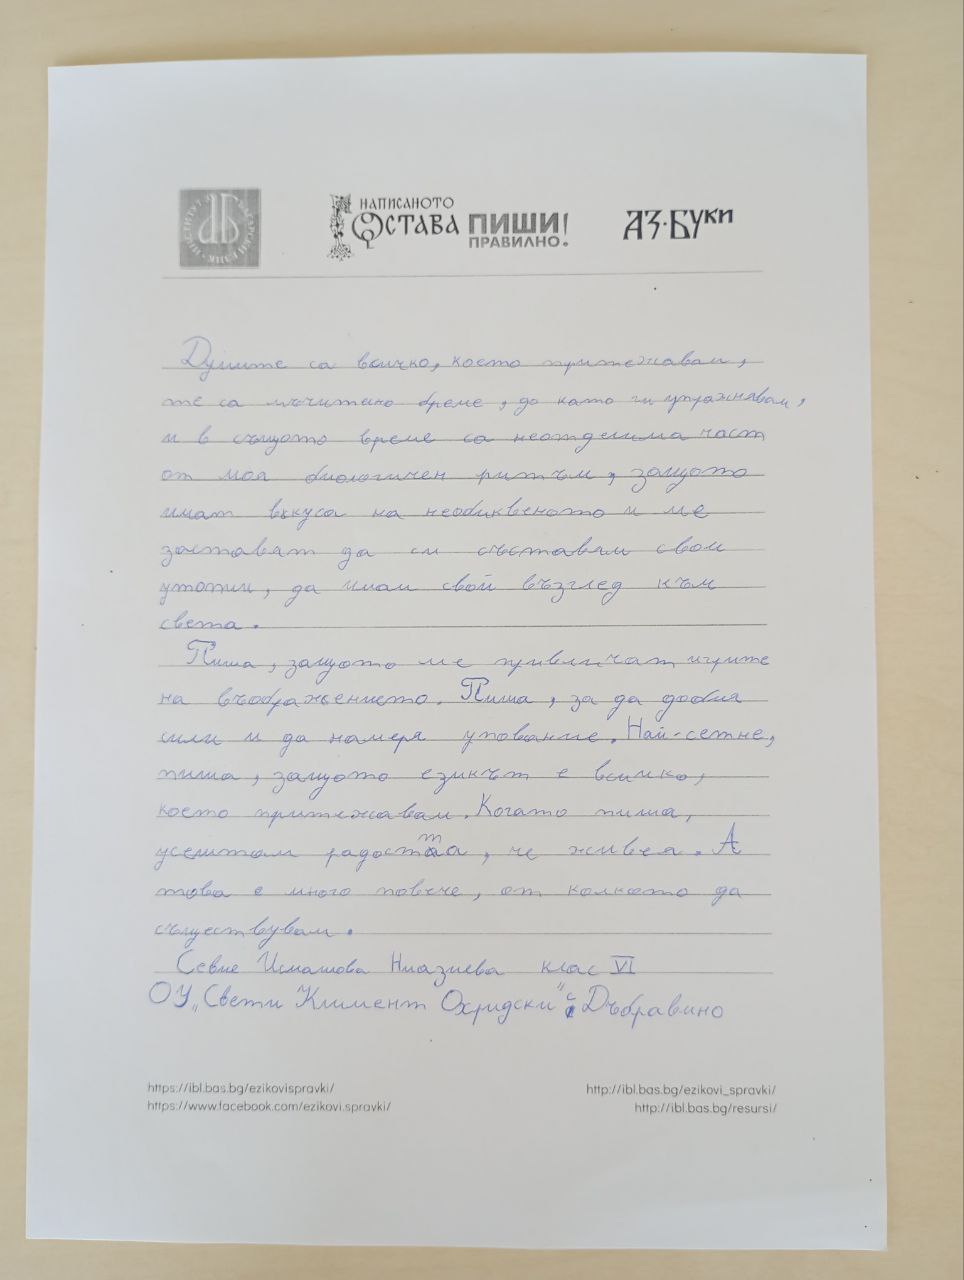 НАПИСАНОТО
ОСТАВА ПИШИ
ПРАВИЛНО!
АЗ·БУКИ
Думите са всичко, което притежавам,
те са мъчително бреме, до като ги упражнявам,
и в същото време са неотделима част
от моя биологичен ритъм, защото
имат вкуса на необиквеното и ме
заставят да си съставям свои
утопии, да имам свой възглед към
света.
Пиша, защото ме привличат игрите
на въображението. Пиша, за да добия
сили и да намеря упование. Най-сетне,
пиша, защото езикът е всичко,
което притежавам. Когато пиша,
усещам радостта, че живея. А
това е много повече, от колкото да
съществувам.
Севие Исмаилова Ниазиева клас VI
ОУ "Свети Климент Охридски" с Дъбравино
https://ibl.bas.bg/ezikovispravki/ http://ibl.bas.bg/ezikovi_spravki/
https://www.facebook.com/ezikovi.spravki/ http://ibl.bas.bg/resursi/